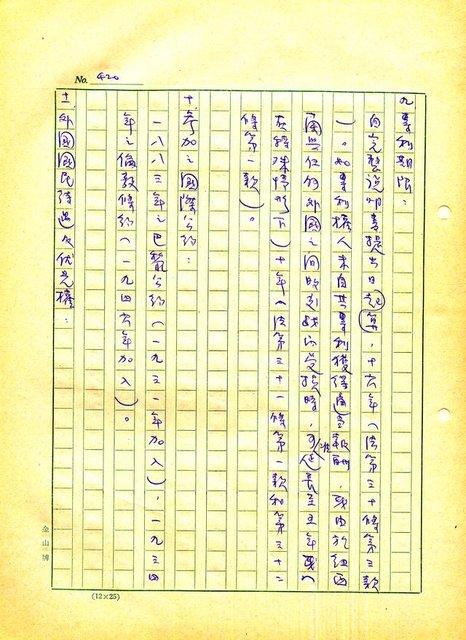 No. 420
九、專利期限：
自完整說明書提出日起算，十六年（法第三十條第三款
）。如專利權人未自其專利獲得適當報酬，或由於紐西
蘭與任何外國之間的起戰而受損時，可准延長至五年或（
在特殊情形下）十年（法第三十一條第一款和第三十二
條第一款）。
十、參加之國際公約：
一八八三年之巴黎公約（一九三一年加入），一九三四
年之倫敦條約（一九四六年加入）。
十一、外國國民待遇及優先權：
金山牌
(12×25)